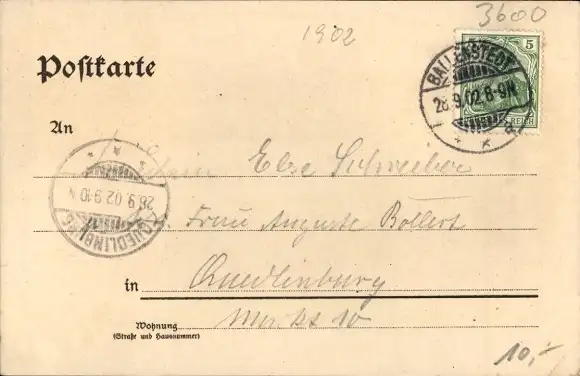 3600
1902
Postkarte
5
BALLENSTEDT
28.9.02.8-9N
An
Else Schreiber
28.9.02.9-10 N
QUEDLINBURG
Frau Auguste Bollert
in Quedlinburg
Wohnung
(Straße und Hausnummer)
10
10,-